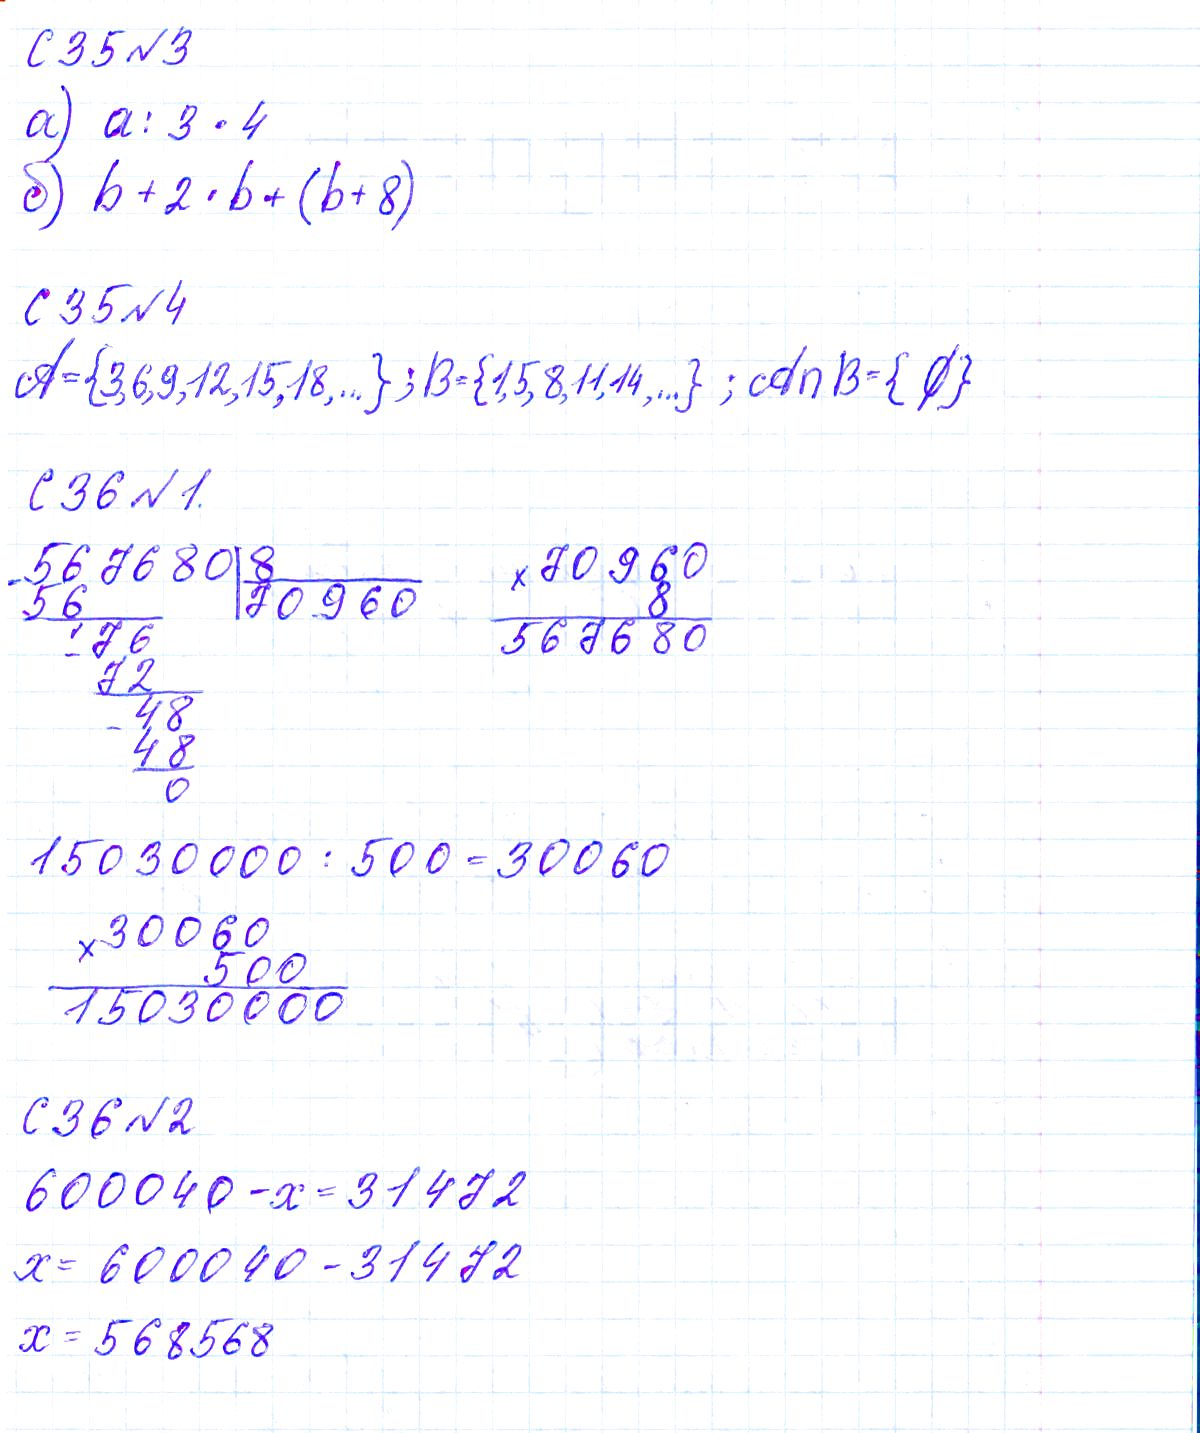 С 35 № 3
а) a : 3 · 4
б) b + 2 · b + (b + 8)
С 35 № 4
A = {3,6,9,12,15,18,...} ; B = {1,5,8,11,14,...} ; A ∩ B = { ∅ }
С 36 № 1.
- 567680 | 8
56 | 70960
- 76
72
- 48
48
0
× 70960
8
567680
15030000 : 500 = 30060
× 30060
500
15030000
С 36 № 2
600040 - x = 31472
x = 600040 - 31472
x = 568568